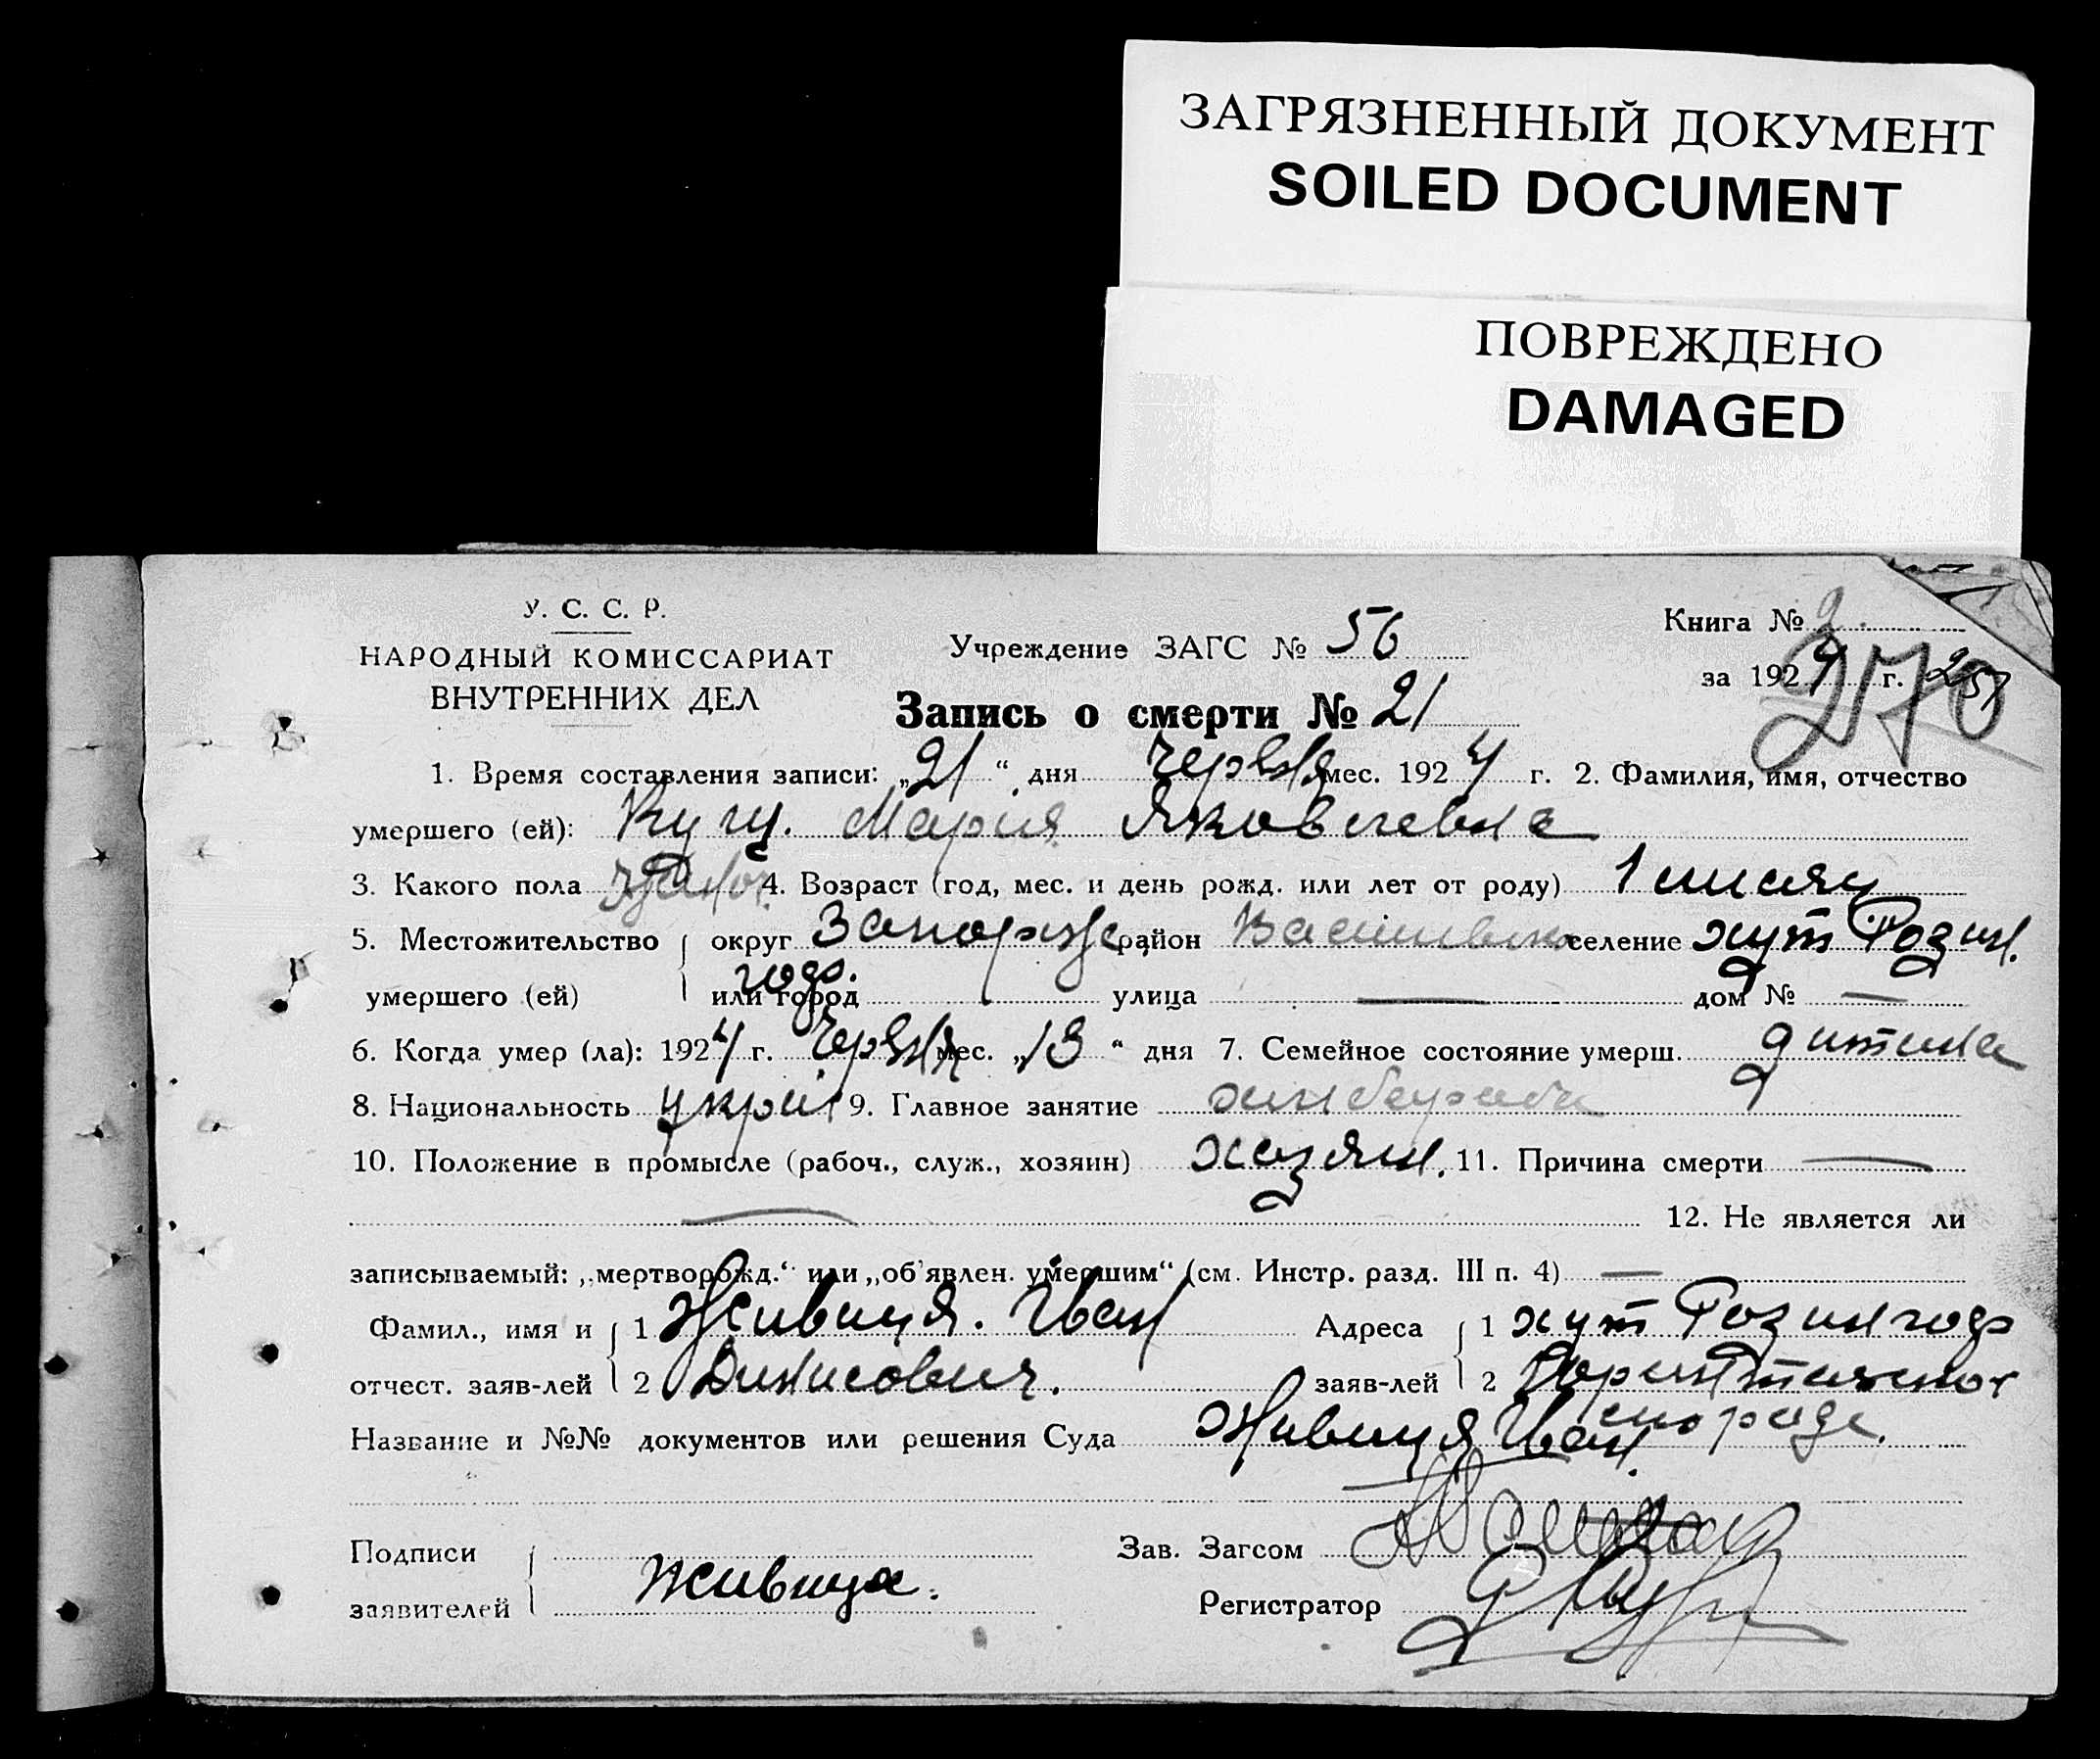 ЗАГРЯЗНЕННЫЙ ДОКУМЕНТ
SOILED DOCUMENT
ПОВРЕЖДЕНО
DAMAGED
У. С. С. Р.
НАРОДНЫЙ КОМИССАРИАТ
ВНУТРЕННИХ ДЕЛ
Учреждение ЗАГС № 56
Книга № 2
за 1924 г. 257
270
Запись о смерти № 21
1. Время составления записи: „21“ дня червня мес. 1924 г. 2. Фамилия, имя, отчество
умершего (ей): Куч. Мария Яковлевна
3. Какого пола 4. Возраст (год, мес. и день рожд. или лет от роду) 1 мисяц
5. Местожительство округ Запориж район Василивка селение хут Розин.
умершего (ей) или город улица — дом № —
6. Когда умер (ла): 1924 г. червня мес. „13“ дня 7. Семейное состояние умерш. дитина
8. Национальность украін 9. Главное занятие
10. Положение в промысле (рабоч., служ., хозяин) хазяин. 11. Причина смерти —
— 12. Не является ли
записываемый: „мертворожд.“ или „об'явлен. умершим“ (см. Инстр. разд. III п. 4) —
Фамил., имя и 1 Живиця. Іван Адреса 1 хут Розин
отчест. заяв-лей 2 Динисович. заяв-лей 2
Название и №№ документов или решения Суда Живиця Іван.
Подписи Зав. Загсом
заявителей Живиця. Регистратор